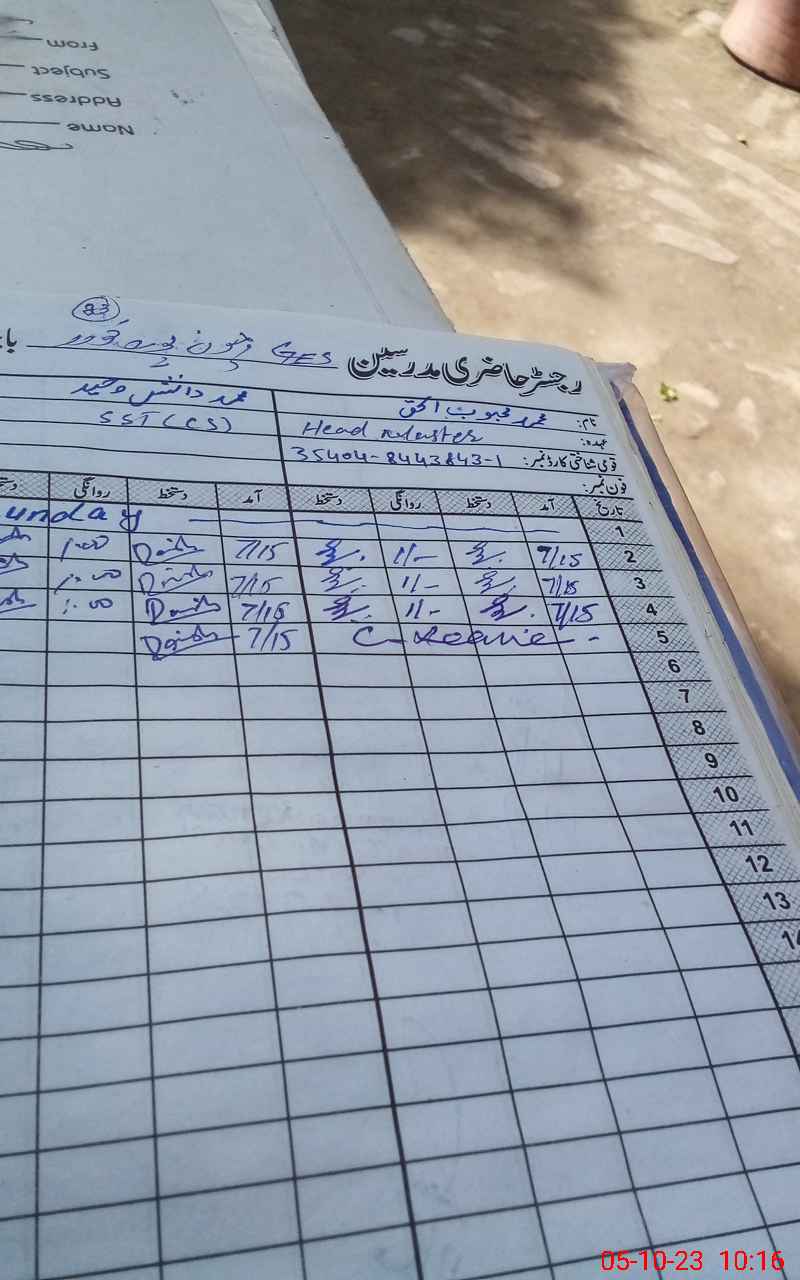 From
Subject
Address
Name
23
رجسٹر حاضری مدرسین GES
نام: محمد محبوب الحق محمد دانش وحید
عہدہ: Head Master SST (CS)
قومی شناختی کارڈ نمبر: 35404-8443843-1
فون نمبر:
تاریخ آمد دستخط روانگی دستخط آمد دستخط روانگی
1 unday
2 7/15 1/- 7/15 Danish 1:00
3 7/15 1/- 7/15 Danish 1:00
4 7/15 1/- 7/15 Danish 1:00
5 C-Leave 7/15 Danish
6
7
8
9
10
11
12
13
14
05-10-23 10:16